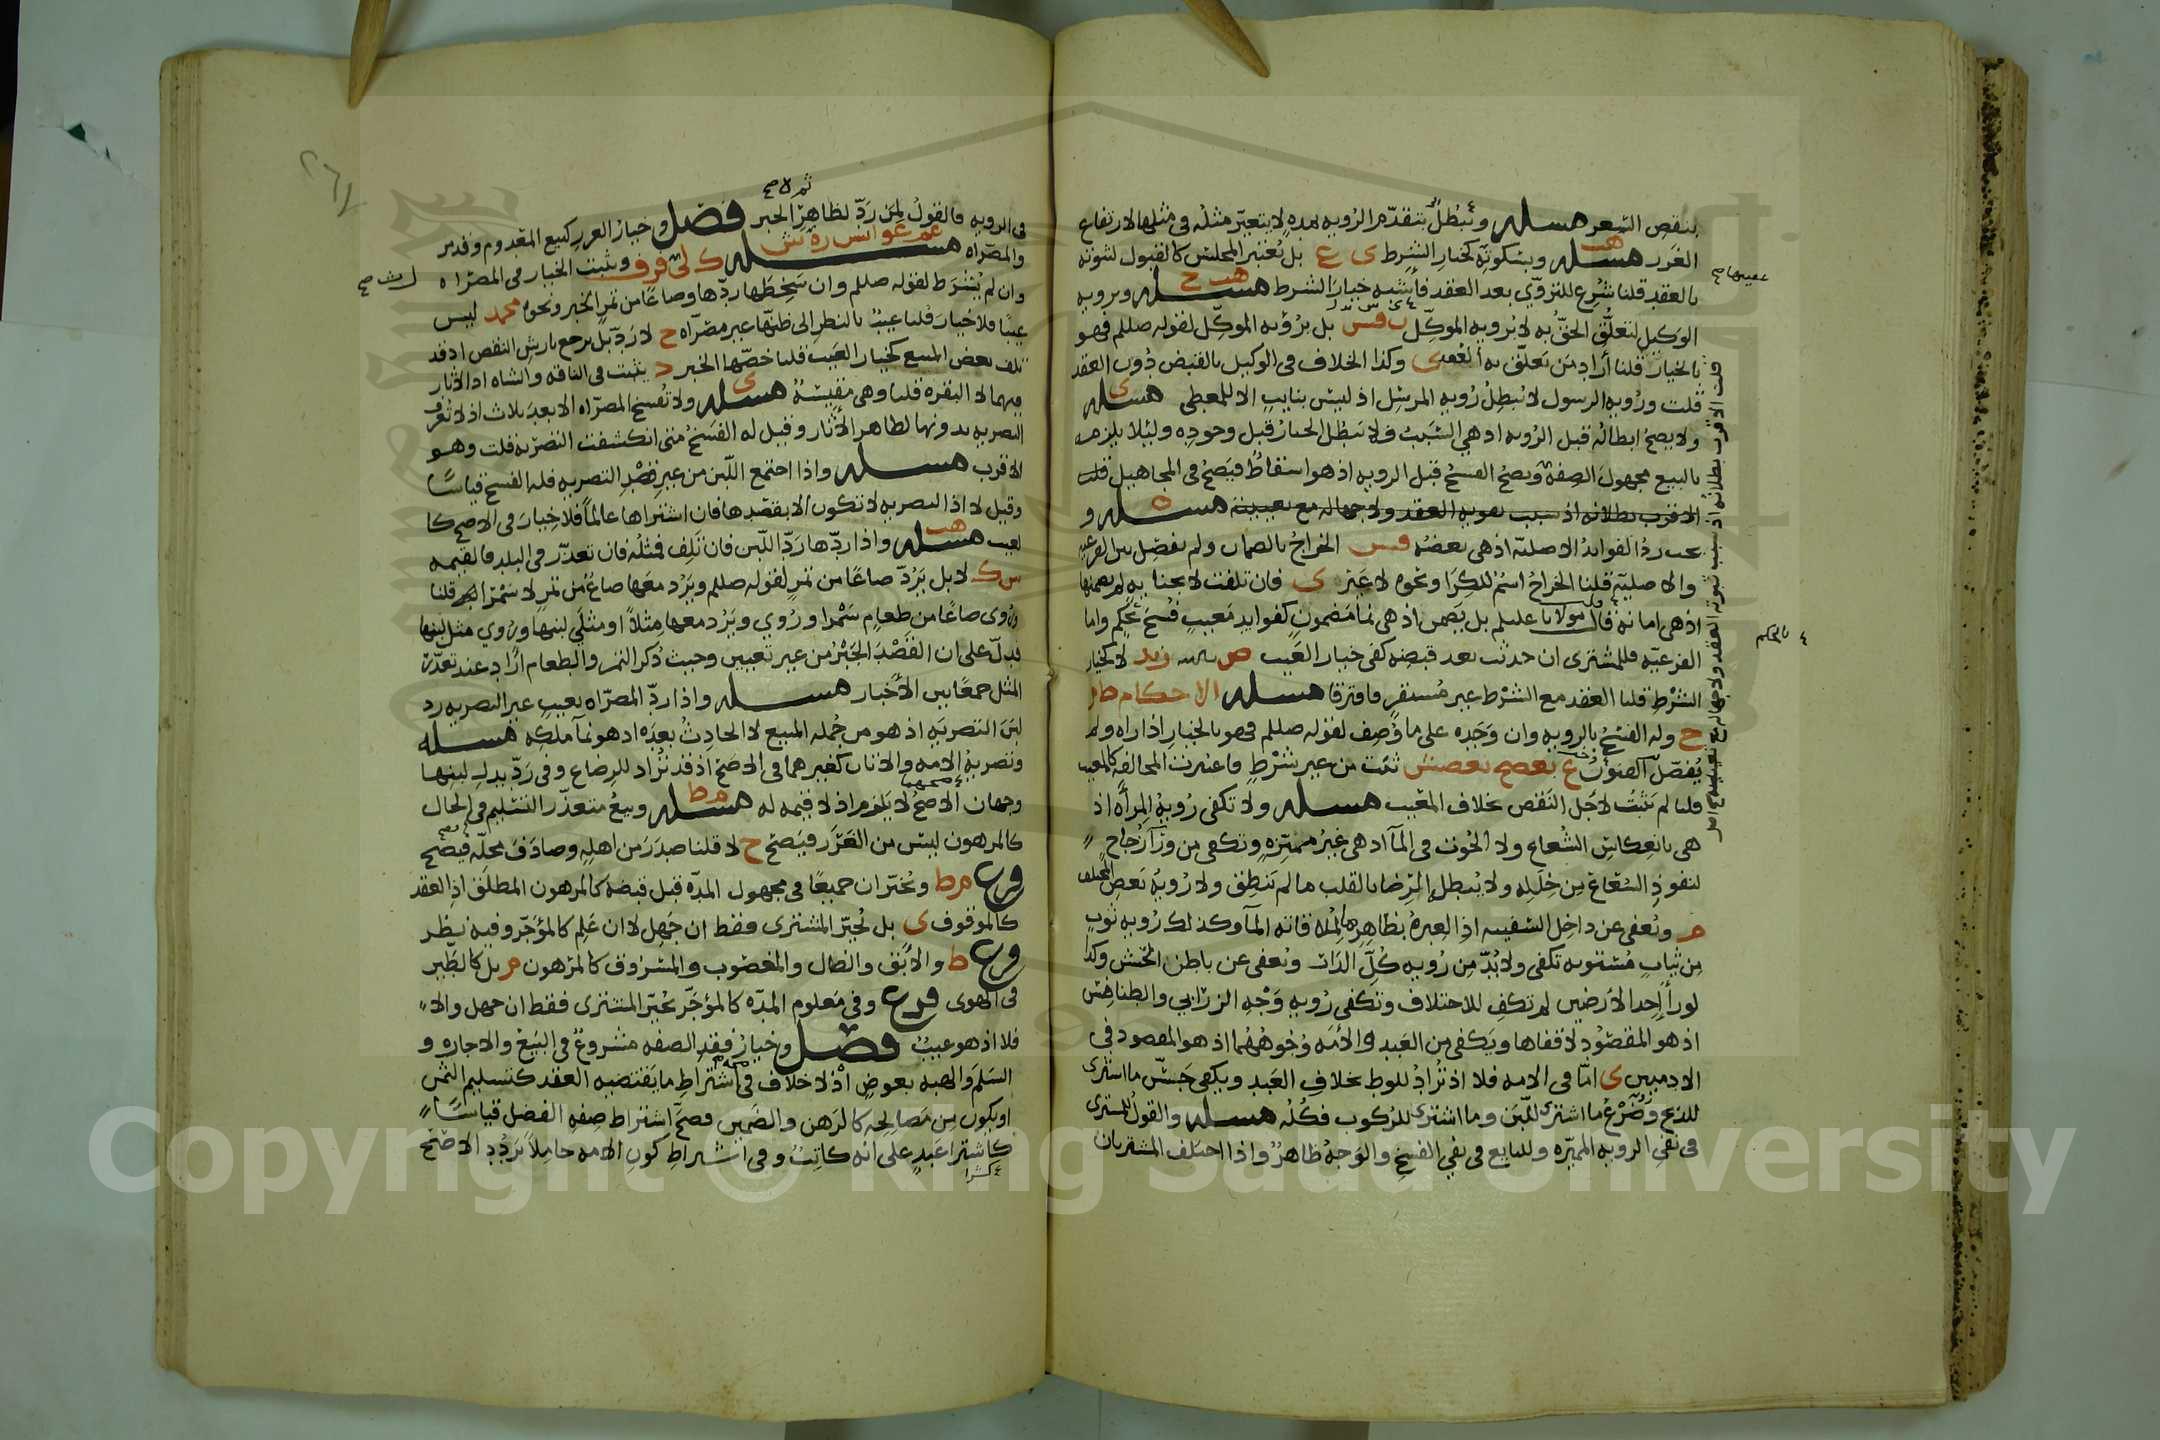 بنقص السعر مسله وتبطل بتقدم الرويه بمده لا يتغير مثله في مثلها لارتفاع
الغرر مسله وبسكوته كخيار الشرط ى ع بل يعتبر المجلس كالقبول لثبوته
بالعقد قلنا شرع للتروي بعد العقد فأشبه خيار الشرط مسله وبرويه
الوكيل لتعلق الحق به لا برويه الموكل بل برويه الموكل لقوله صللم فهو
بالخيار قلنا أراد من تعلق به العقد ى وكذا الخلاف في الوكيل بالقبض دون العقد
قلت ورويه الرسول لا تبطل رويه المرسل اذ ليس بنايب الا للمعطى مسله
ولا يصح ابطاله قبل الرويه اذ هي السبب فلا يبطل الخيار قبل وجوده وليلا يلزمه
بالبيع مجهول الصفة ويصح الفسخ قبل الرويه اذ هو اسقاط فيصح في المجاهيل قلت
الاقرب بطلانه اذ سبب ثبوته العقد ولا جهاله مع تعيينه مسله و
يجب رد الفوايد الاصليه اذ هي بعضه الخراج بالضمان ولم يفصل بين الفرعيه
والاصليه قلنا الخراج اسم للكرا ونحوه لا غيره ى فان تلفت لا بجنايه لم يضمنها
اذ هي امانه قال مولانا عليلم بل يضمن اذ هي نما مضمون كفوايد معيب فسخ بحكم واما
الفرعيه فللمشتري ان حدثت بعد قبضه كفى خيار العيب ص زيد لا كخيار
الشرط قلنا العقد مع الشرط غير مستقر فافترقا مسله الاحكام ط
ح وله الفسخ بالرويه وان وجده على ما وصف لقوله صللم فهو بالخيار اذا راه ولم
يفصل ع بعصح بعصش ثبت من غير شرط فاعتبرت المخالفه كالمعيب
قلنا لم يثبت لاجل النقص بخلاف المعيب مسله ولا تكفى رويه المرأه اذ
هي بانعكاس الشعاع ولا الحوت في المآ اذ هي غير مميزه وتكفى من ورآ زجاج
لنفوذ الشعاع من خلله ولا يبطل الرضا بالقلب ما لم ينطق ولا رويه بعض المختلف
م وتعفى عن داخل السفينه اذ العبره بظاهرها لملاقاته المآ وكذلك رويه ثوب
من ثياب مستويه تكفى ولا بد من رويه كل الدار وتعفى عن باطن الحش وكذا
لو رأ احد الارضين لم تكف للاختلاف وتكفى رويه وجه الزرابي والطنافس
اذ هو المقصود لا قفاها ويكفى من العبد والأمه وجوههما اذ هو المقصود في
الادميين ى اما في الامه فلا اذ تراد للوط بخلاف العبد ويكفى جس ما اشترى
للذبح وضرع ما اشترى للبن وما اشترى للركوب فكله مسله والقول للمشتري
في نفي الرويه المميزه وللبايع في نفي الفسخ والوجه ظاهر واذا اختلف المشتريان
في الرويه فالقول لمن رد لظاهر الخبر فصل وخيار الغرر كبيع المعدوم وقدير
والمصراه مسله ك لى فر ف ويثبت الخيار في المصراه
وان لم يشرط لقوله صللم وان سخطها ردها وصاعا من تمر الخبر ونحوه محمد ليس
عيبا فلا خيار قلنا عيب بالنظر الى ظنها غير مصراه ح لا رد بل يرجع بارش النقص اذ قد
تلف بعض المبيع كخيار العيب قلنا خصها الخبر د يثبت في الناقه والشاه اذ الاثار
فيهما لا البقره قلنا وهى مقيسة مسله ولا تفسخ المصراه الا بعد ثلاث اذ لا تعرف
التصريه بدونها لظاهر الآثار وقيل له الفسخ متى انكشفت التصريه قلت وهو
الاقرب مسله واذا اجتمع اللبن من غير قصد التصريه فله الفسخ قياسا
وقيل لا اذ التصريه لا تكون الا بقصدها فان اشتراها عالما فلا خيار في الاصح كا
لعيب مسله واذا ردها رد اللبن فان تلف فمثله فان تعذر في البلد فالقيمه
س ك لا بل يرد صاعا من تمر لقوله صللم ويرد معها صاع من تمر لا سمرا قلنا
وروى صاعا من طعام سمرا وروي ويرد معها مثلا او مثلي لبنها وروي مثل لبنها
فدل على ان القصد الجبر من غير تعيين وحيث ذكر التمر والطعام اراد عند تعذر
المثل جمعا بين الاخبار مسله واذا رد المصراه بعيب غير التصريه رد
لبن التصريه اذ هو من جمله المبيع لا الحادث بعده اذ هو نمآ ملكه مسله
وتصريه الامه والاتان كغيرهما في الاصح اذ قد تراد للرضاع وفى رد بدل لبنها
وجهان الاصح لا يلزم اذ لا قيمه له مسله وبيع متعذر التسليم في الحال
كالمرهون ليس من الغرر فيصح ح لا قلنا صدر من اهله وصادف محله فيصح
فرع م ط ويخيران جميعا في مجهول المده قبل قبضه كالمرهون المطلق اذ العقد
كالموقوف ى بل يخير المشترى فقط ان جهل لا ان علم كالمؤجر وفيه نظر
فرع ط والابق والضال والمغصوب والمسروق كالمرهون م بل كالطير
في الهوى فرع وفي معلوم المده كالمؤجر يخير المشترى فقط ان جهل والا
فلا اذ هو عيب فصل وخيار فقد الصفه مشروع في البيع والاجاره و
السلم والهبه بعوض اذ لا خلاف في اشتراط ما يقتضيه العقد كتسليم الثمن
او يكون من مصالحه كالرهن والضمين فصح اشتراط صفه الفضل قياسا
كاشترا عبد على انه كاتب وفي اشتراط كون الامه حاملا تردد الاصح